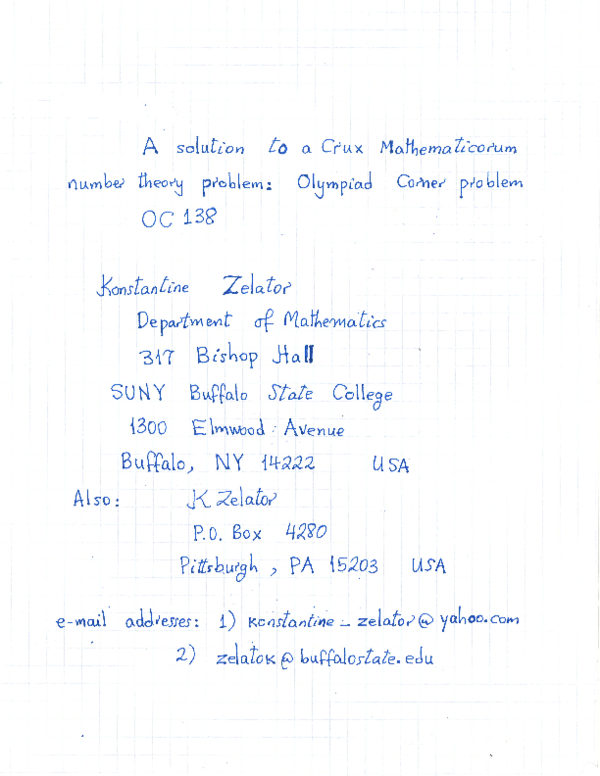 A solution to a Crux Mathematicorum
number theory problem: Olympiad Corner problem
OC 138
Konstantine Zelator
Department of Mathematics
317 Bishop Hall
SUNY Buffalo State College
1300 Elmwood Avenue
Buffalo, NY 14222 USA
Also: K Zelator
P.O. Box 4280
Pittsburgh, PA 15203 USA
e-mail addresses: 1) konstantine_zelator@yahoo.com
2) zelatok@buffalostate.edu